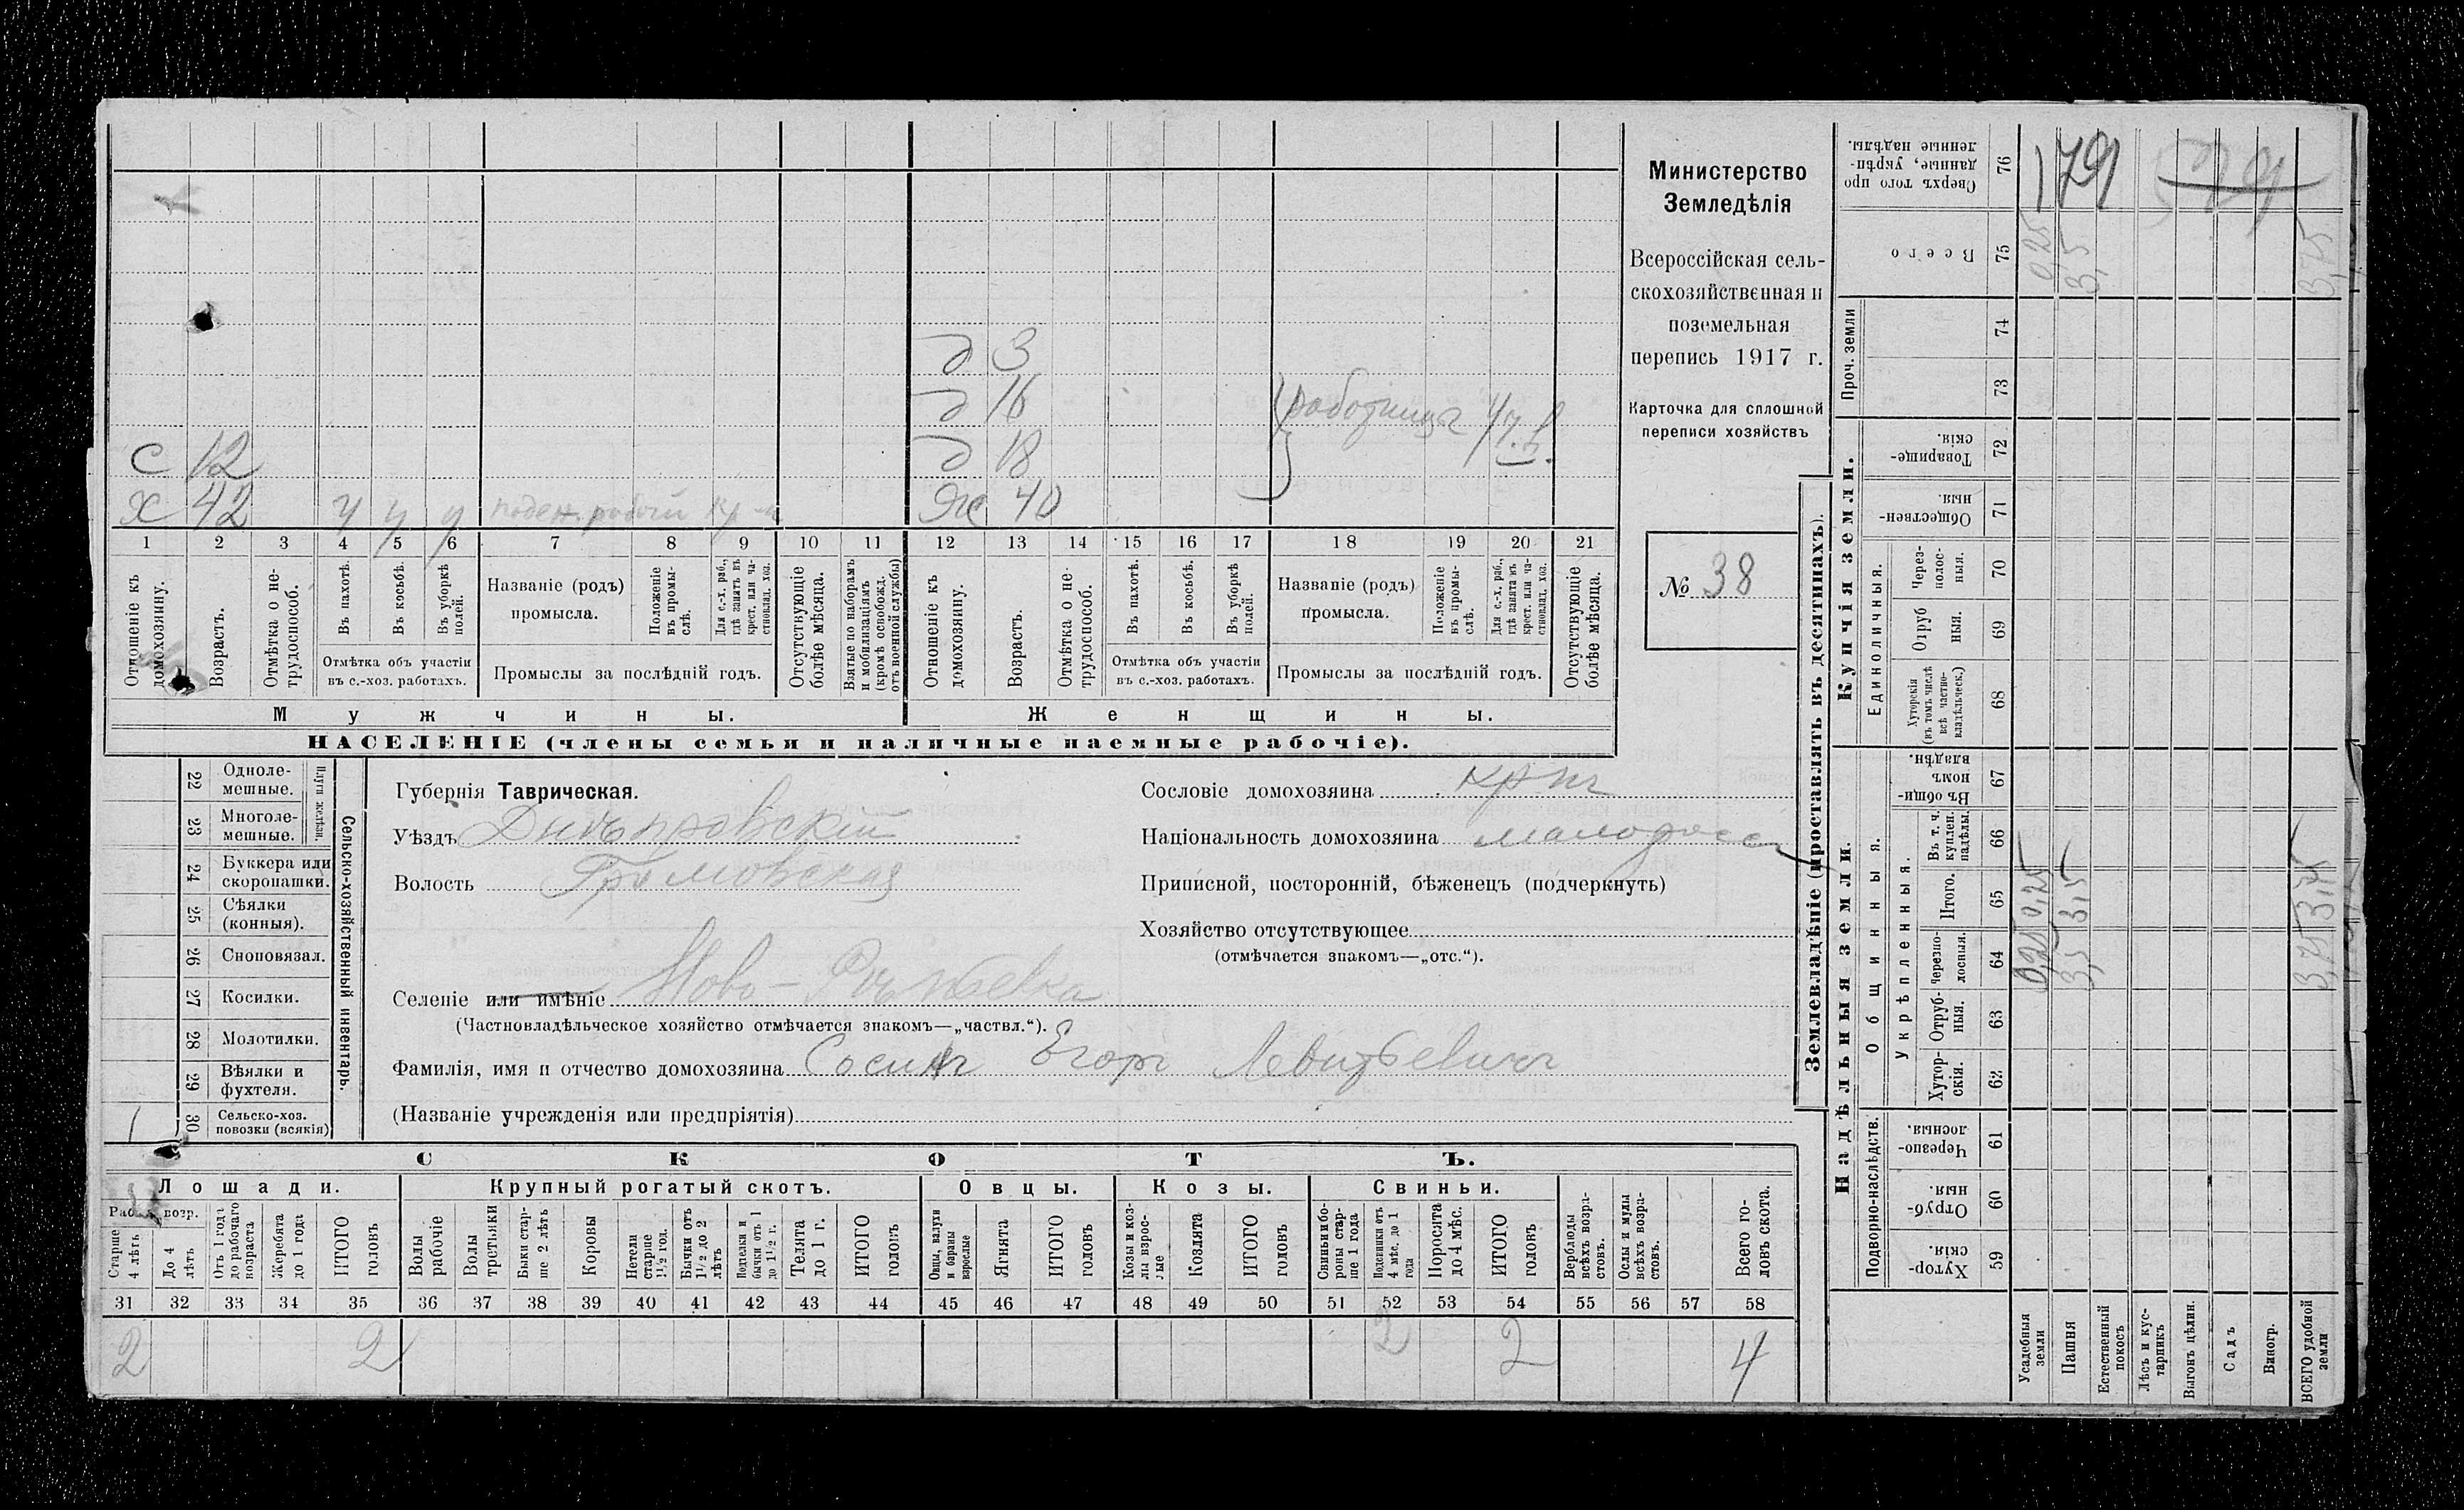 Министерство
Земледѣлія
Всероссійская сель-
скохозяйственная и
поземельная
перепись 1917 г.
Карточка для сплошной
переписи хозяйствъ
№ 38
д 3
д 16
д 18
с 12
х 42 у у у поден. рабочій
ж 40
работницы
1 2 3 4 5 6 7 8 9 10 11 12 13 14 15 16 17 18 19 20 21
Отношеніе къ домохозяину.
Возрастъ.
Отмѣтка о не-трудоспособ.
Въ пахотѣ.
Въ косьбѣ.
Въ уборкѣ полей.
Отмѣтка объ участіи
въ с.-хоз. работахъ.
Названіе (родъ)
промысла.
Положеніе въ промы-слѣ.
Для с.-х. раб., гдѣ занятъ въ крест. или ча-стновлад. хоз.
Промыслы за послѣдній годъ.
Отсутствующіе болѣе мѣсяца.
Взятые по наборамъ и мобилизаціямъ (кромѣ освобожд. отъ военной службы)
Отношеніе къ домохозяину.
Возрастъ.
Отмѣтка о не-трудоспособ.
Въ пахотѣ.
Въ косьбѣ.
Въ уборкѣ полей.
Отмѣтка объ участіи
въ с.-хоз. работахъ.
Названіе (родъ)
промысла.
Положеніе въ промы-слѣ.
Для с.-х. раб., гдѣ занята въ крест. или ча-стновлад. хоз.
Промыслы за послѣдній годъ.
Отсутствующіе болѣе мѣсяца.
Мужчины.
Женщины.
НАСЕЛЕНІЕ (члены семьи и наличные наемные рабочіе).
22 Одноле-мешные.
23 Многоле-мешные.
Плуги желѣзн.
24 Буккера или скоропашки.
25 Сѣялки (конныя).
26 Сноповязал.
27 Косилки.
28 Молотилки.
29 Вѣялки и фухтеля.
30 Сельско-хоз. повозки (всякія) 1
Сельско-хозяйственный инвентарь.
Губернія Таврическая.
Уѣздъ Днѣпровскій
Волость Громовская
Селеніе или имѣніе Ново-
(Частновладѣльческое хозяйство отмѣчается знакомъ—„частвл.“).
Фамилія, имя и отчество домохозяина Егоръ
(Названіе учрежденія или предпріятія)
Сословіе домохозяина
Національность домохозяина малоросс
Приписной, посторонній, бѣженецъ (подчеркнуть)
Хозяйство отсутствующее
(отмѣчается знакомъ—„отс.“).
СКОТЪ.
Лошади.
Крупный рогатый скотъ.
Овцы.
Козы.
Свиньи.
Раб. возр.
Старше 4 лѣтъ
До 4 лѣтъ
Отъ 1 года до рабочаго возраста
Жеребята до 1 года
ИТОГО головъ
Волы рабочіе
Волы третьяки
Быки стар-ше 2 лѣтъ
Коровы
Нетели старше 1½ год.
Бычки отъ 1½ до 2 лѣтъ
Подтелки и бычки отъ 1 до 1½ г.
Телята до 1 г.
ИТОГО головъ
Овцы, валухи и бараны взрослые
Ягнята
ИТОГО головъ
Козы и коз-лы взрос-лые
Козлята
ИТОГО головъ
Свиньи и бо-ровы стар-ше 1 года
Подсвинки отъ 4 мѣс. до 1 года
Поросята до 4 мѣс.
ИТОГО головъ
Верблюды всѣхъ возра-стовъ.
Ослы и мулы всѣхъ возра-стовъ.
Всего го-ловъ скота.
31 32 33 34 35 36 37 38 39 40 41 42 43 44 45 46 47 48 49 50 51 52 53 54 55 56 57 58
2 2 2 2 4
Землевладѣніе (проставлять въ десятинахъ).
Надѣльныя земли.
Купчія земли.
Проч. земли
Подворно-наслѣдств.
Общинныя.
Укрѣпленныя.
Единоличныя.
Сверхъ того про-данные, укрѣп-ленные надѣлы. 76 179
Всего 75 0,25 3,5 3,75
74
73
Товарище-скія. 72
Обществен-ныя. 71
Через-полос-ныя. 70
Отруб-ныя. 69
Хуторскія (въ томъ числѣ всѣ частно-владѣльческ.) 68
Въ общин-номъ владѣн. 67
Въ т. ч. куплен. надѣлы. 66
Итого. 65 0,25 3,5 3,75
Черезпо-лосныя. 64 0,25 3,5 3,75
Отруб-ныя. 63
Хутор-скія. 62
Черезпо-лосныя. 61
Отруб-ныя. 60
Хутор-скія. 59
Усадебныя земли
Пашня
Естественный покосъ
Лѣсъ и кус-тарникъ
Выгонъ цѣлин.
Садъ
Виногр.
ВСЕГО удобной земли